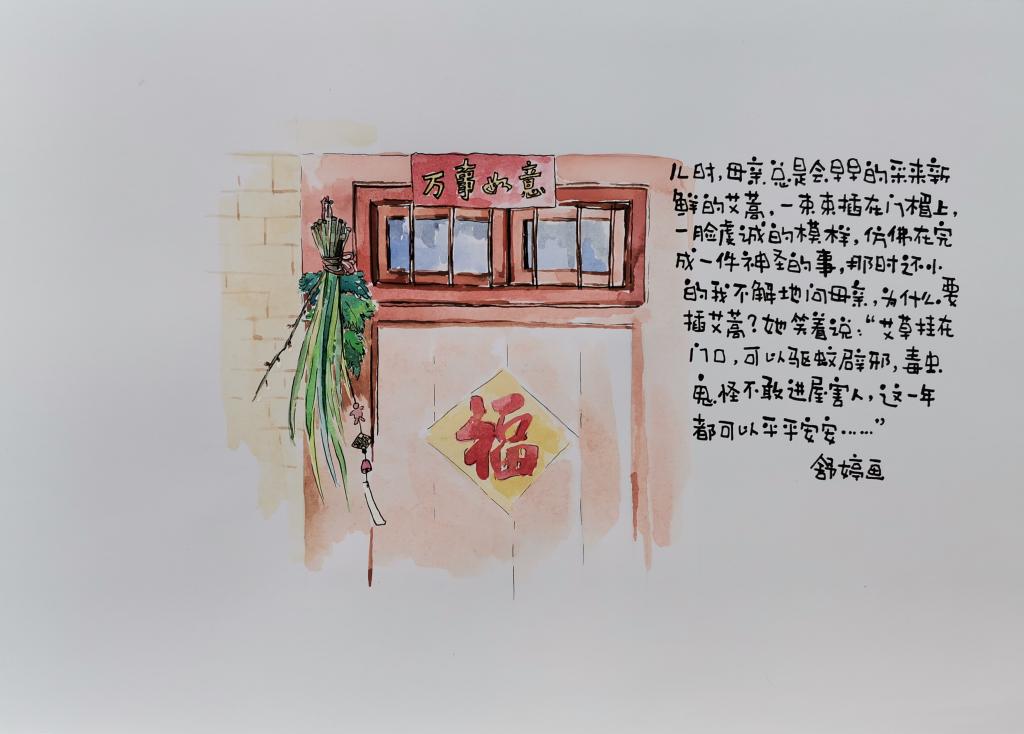 万事如意
福
儿时,母亲总是会早早的采来新
鲜的艾蒿,一束束插在门楣上,
一脸虔诚的模样,仿佛在完
成一件神圣的事,那时还小
的我不解地问母亲,为什么要
插艾蒿?她笑着说:“艾草挂在
门口,可以驱蚊辟邪,毒虫
鬼怪不敢进屋害人,这一年
都可以平平安安……”
舒婷画